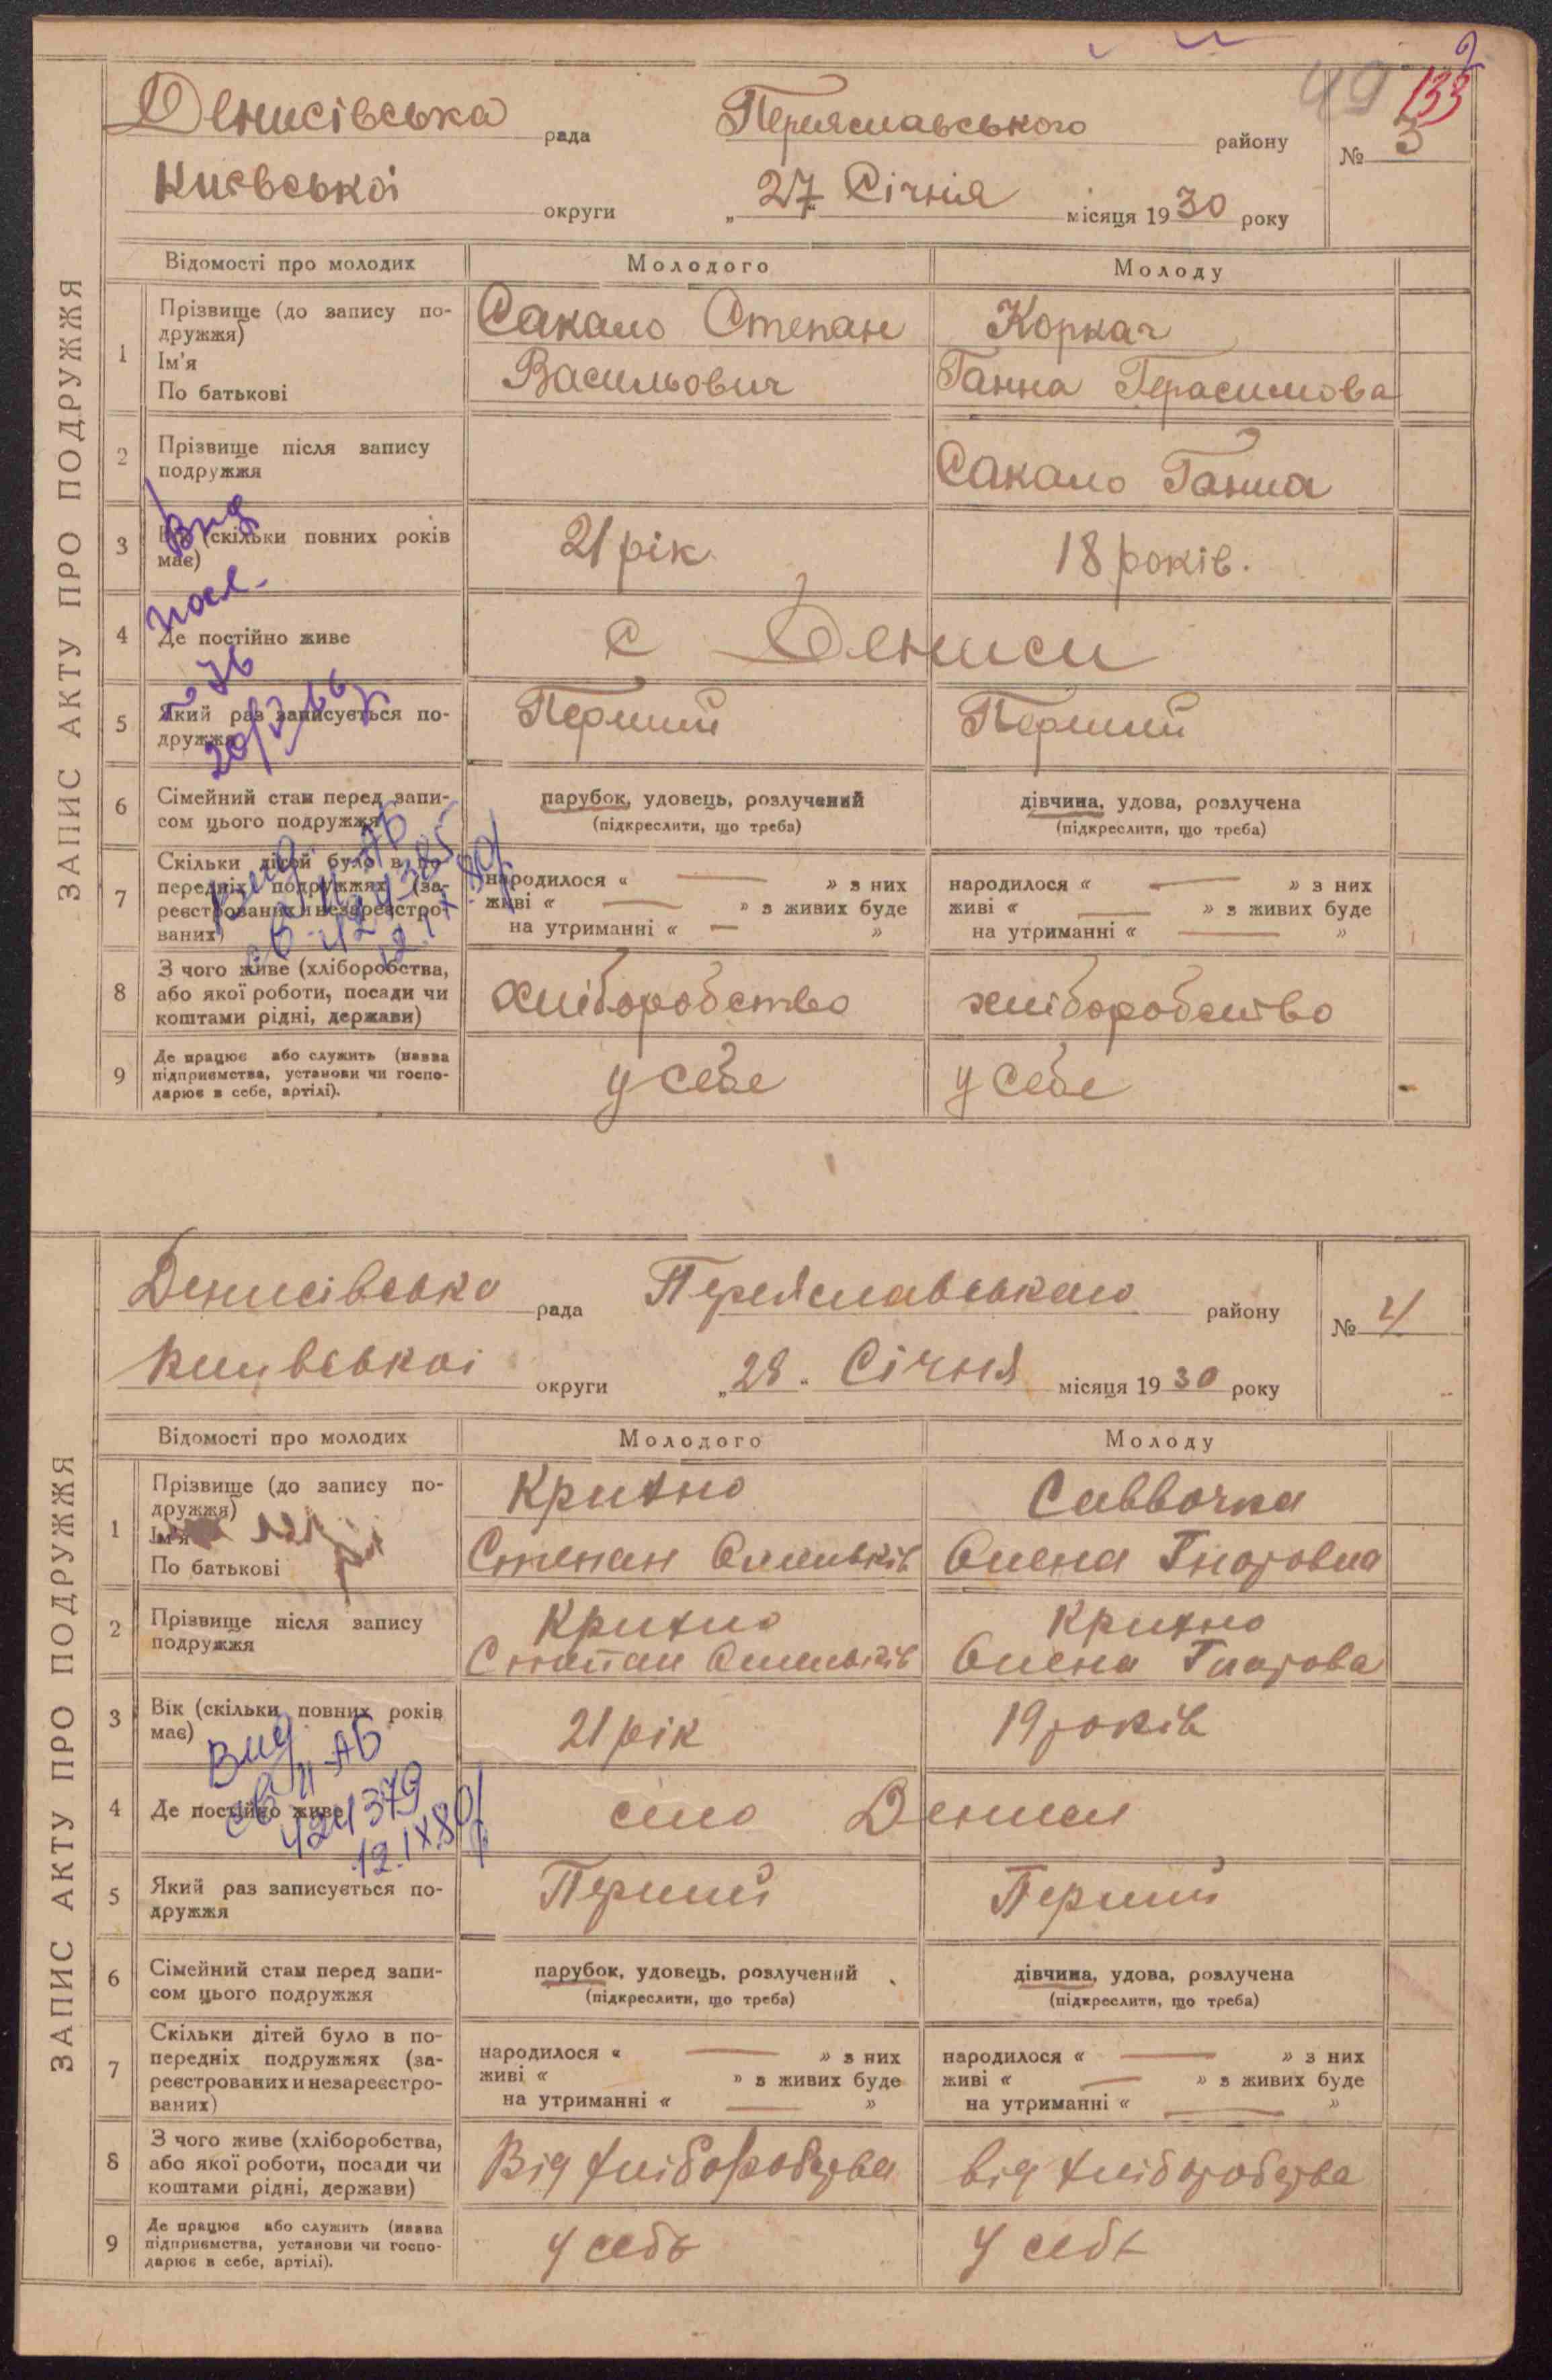 49 133
Денисівська рада Переяславського району № 3
Київської округи „ 27 Січня місяця 1930 року
ЗАПИС АКТУ ПРО ПОДРУЖЖЯ
Відомості про молодих Молодого Молоду
1 Прізвище (до запису по- Сакало Степан Коркач
дружжя)
Ім'я
По батькові Васильович Ганна Герасимова
2 Прізвище після запису Сакало Ганна
подружжя
3 (скільки повних років 21 рік 18 років.
має)
4 Де постійно живе с Дениси
5 Який раз записується по- Перший Перший
дружжя
6 Сімейний стан перед запи- парубок, удовець, розлучений дівчина, удова, розлучена
сом цього подружжя (підкреслити, що треба) (підкреслити, що треба)
7 Скільки дітей було в по-
передніх подружжях (за- народилося « — » з них народилося « — » з них
реєстрованих и незареєстро- живі « — » з живих буде живі « — » з живих буде
ваних) на утриманні « — » на утриманні « — »
8 З чого живе (хліборобства,
або якої роботи, посади чи хліборобство хліборобство
коштами рідні, держави)
9 Де працює або служить (назва
підприємства, установи чи госпо- у себе у себе
дарює в себе, артілі).
Денисівська рада Переяславського району № 4
Київської округи „ 28. Січня місяця 1930 року
ЗАПИС АКТУ ПРО ПОДРУЖЖЯ
Відомості про молодих Молодого Молоду
1 Прізвище (до запису по- Крихно Саввочка
дружжя)
Ім'я
По батькові Степан Олена
2 Прізвище після запису Крихно Крихно
подружжя Степан Олена
3 Вік (скільки повних років 21 рік 19 років
має)
Вид
св II АБ
424379
12.IX.80
4 Де постійно живе село Дениси
5 Який раз записується по- Перший Перший
дружжя
6 Сімейний стан перед запи- парубок, удовець, розлучений дівчина, удова, розлучена
сом цього подружжя (підкреслити, що треба) (підкреслити, що треба)
7 Скільки дітей було в по-
передніх подружжях (за- народилося « — » з них народилося « — » з них
реєстрованих и незареєстро- живі « » з живих буде живі « — » з живих буде
ваних) на утриманні « — » на утриманні « — »
8 З чого живе (хліборобства,
або якої роботи, посади чи Від хліборобства від хліборобства
коштами рідні, держави)
9 Де працює або служить (назва
підприємства, установи чи госпо- у себе у себе
дарює в себе, артілі).